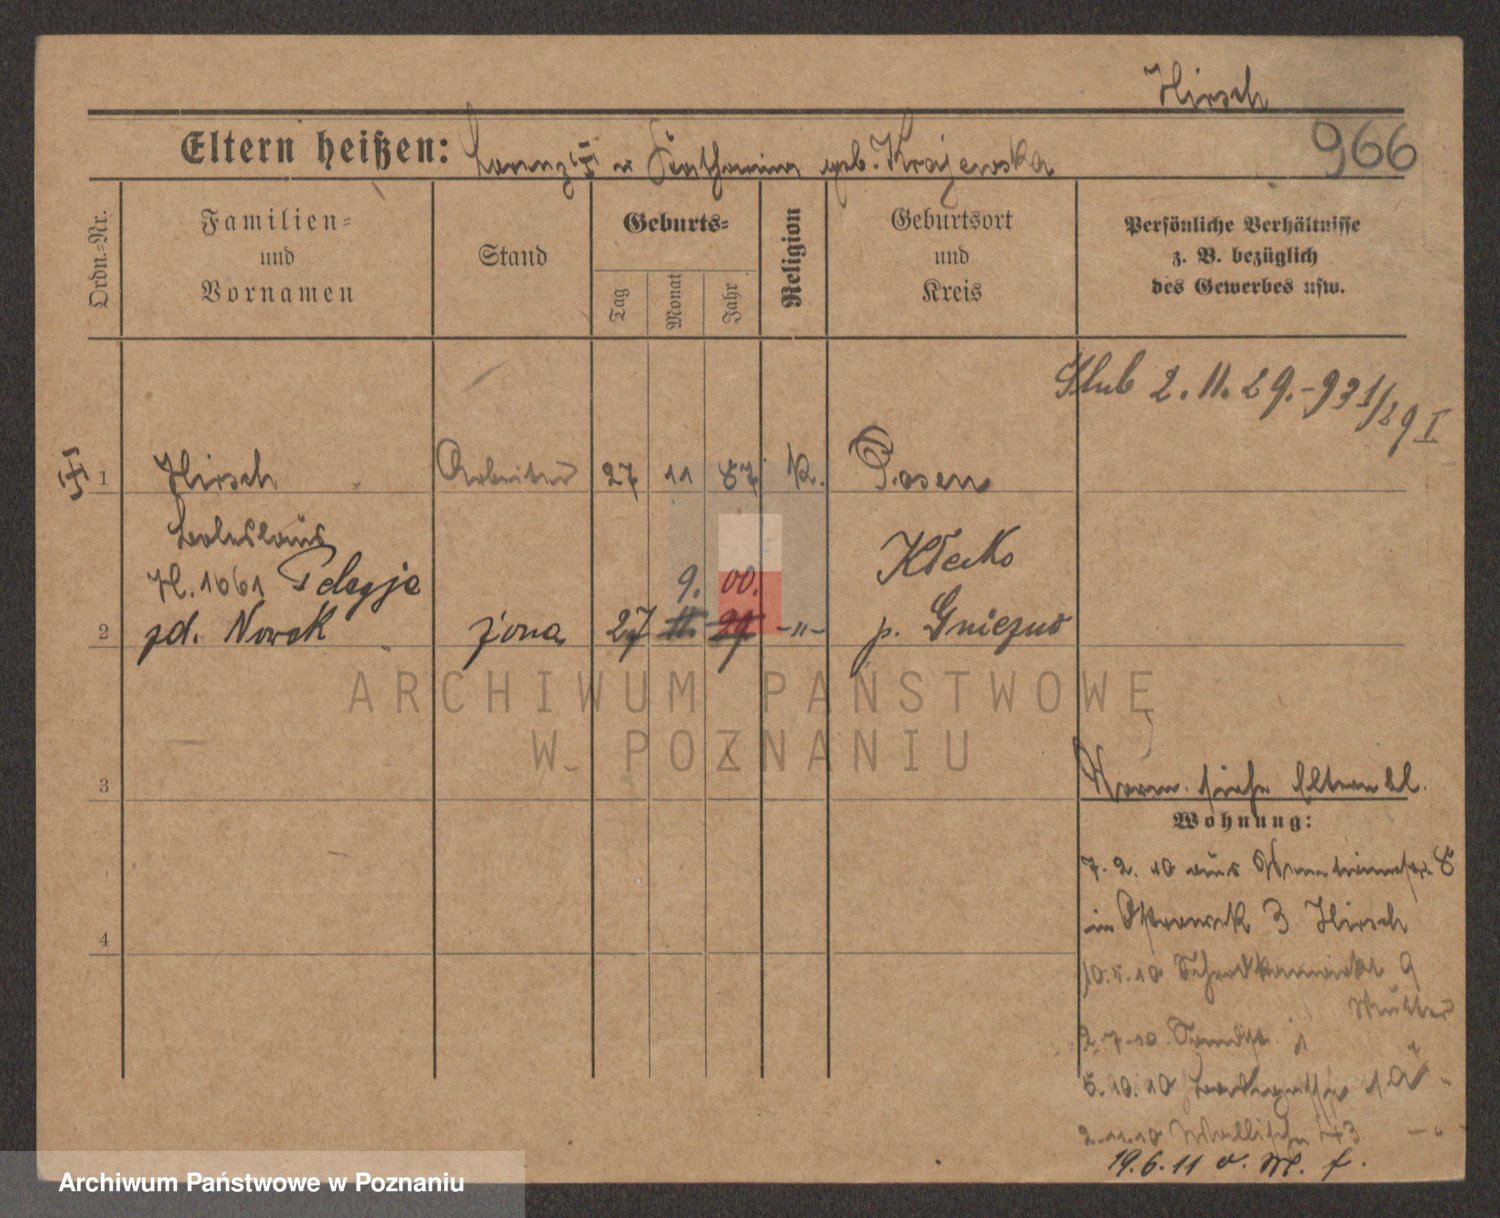 Hirsch
966
Eltern heißen: Lorenz u Katharina geb. Krajewska
Ordn.-Nr.
Familien-
und
Vornamen
Stand
Geburts-
Tag
Monat
Jahr
Religion
Geburtsort
und
Kreis
Persönliche Verhältnisse
z. B. bezüglich
des Gewerbes usw.
Ślub 2. 11. 29. - 931/29 I
1 Hirsch Arbeiter 27 11 87 K. Posen
Boleslaus
H. 1061 Pelagja 9. 00. Kłecko
2 zd. Nowak żona 27 11. 27 -"- p. Gniezno
ARCHIWUM PAŃSTWOWE
W POZNANIU
3
Norm. siehe Elternbl.
Wohnung:
7. 2. 10 aus 8
in Ostrowek 3 Hirsch
4
10. 5. 10 Schrodkamarkt 9
Mutter
2. 7. 10. Sandstr. 1
5. 10. 10
2. 11. 10 Wallischei 43 -"-
19. 6. 11 v. M. f.
Archiwum Państwowe w Poznaniu